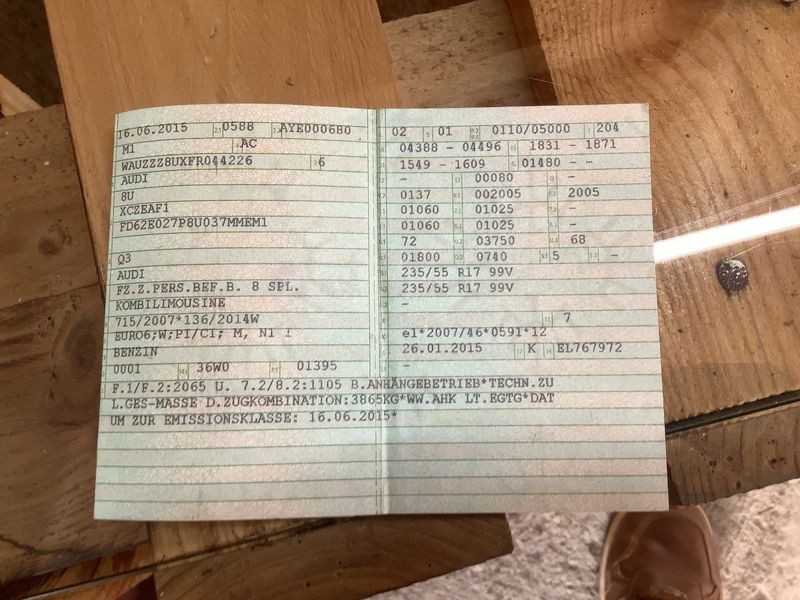 16.06.2015 0588 AYE000680
M1 AC
WAUZZZ8UXFR044226 6
AUDI
8U
XCZEAF1
FD62E027P8U037MMEM1
Q3
AUDI
FZ.Z.PERS.BEF.B. 8 SPL.
KOMBILIMOUSINE
715/2007*136/2014W
EURO6;W;PI/CI; M, N1 I
BENZIN
0001 36W0 01395
02 01 0110/05000 204
04388 - 04496 1831 - 1871
1549 - 1609 01480 - -
- 00080 -
0137 002005 2005
01060 01025 -
01060 01025 -
72 03750 68
01800 0740 5 -
235/55 R17 99V
235/55 R17 99V
-
7
e1*2007/46*0591*12
26.01.2015 K EL767972
-
F.1/F.2:2065 U. 7.2/8.2:1105 B.ANHÄNGEBETRIEB*TECHN.ZU
L.GES-MASSE D.ZUGKOMBINATION:3865KG*WW.AHK LT.EGTG*DAT
UM ZUR EMISSIONSKLASSE: 16.06.2015*